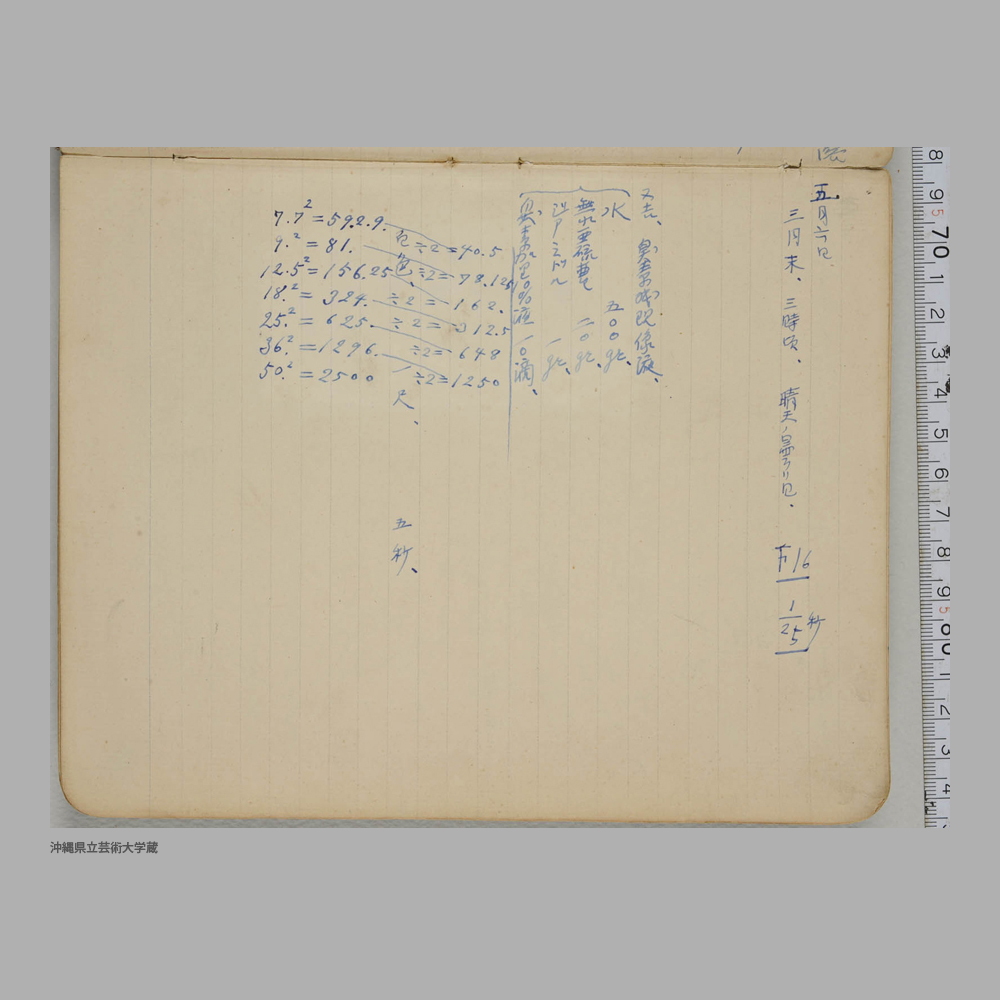 五月六日
三月末、三時頃、晴天ノ曇リ日、 F16 1/25秒
又は、臭素減現像液、
水 五〇〇gr、
無水亜硫曹 二〇gr、
メトール 一gr、
臭素加里10%液 一〇滴、
7.7²=592.9.
9.²=81. ÷2=40.5
12.5²=156.25 ÷2=78.125
18.²=324. ÷2=162.
25.²=625. ÷2=312.5
36.²=1296. ÷2=648
50.²=2500 ÷2=1250
尺、 五秒、
沖縄県立芸術大学蔵